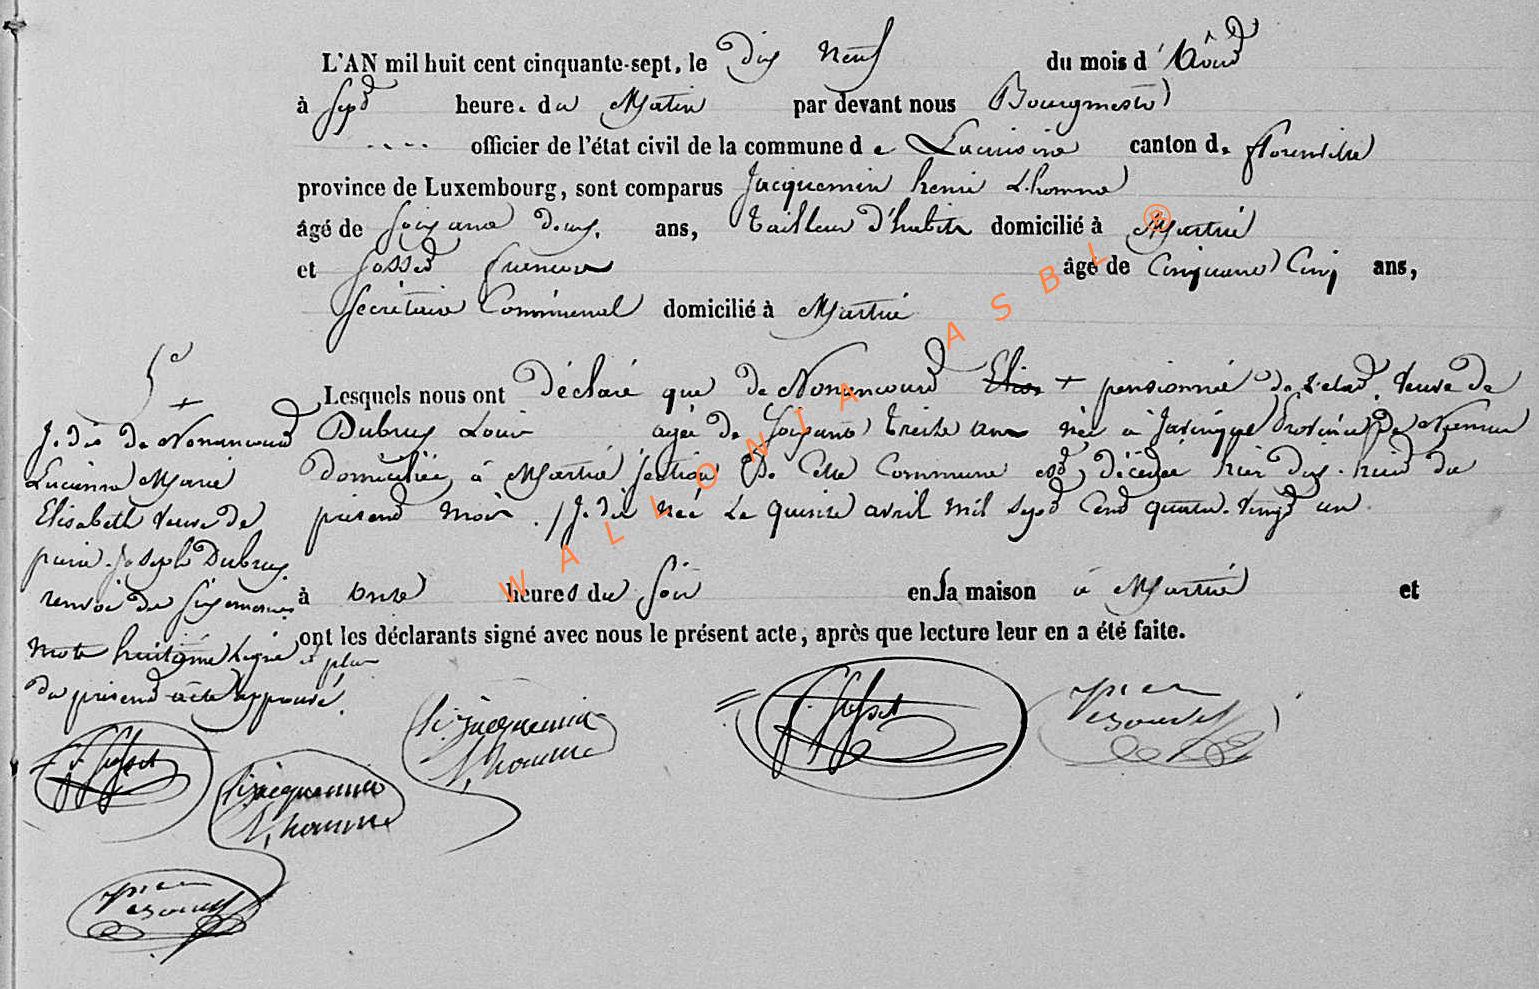 L'AN mil huit cent cinquante-sept, le Dix Neuf du mois d'Août
à Sept heure. du Matin par devant nous Bourgmestre
officier de l'état civil de la commune de canton de florenville
province de Luxembourg, sont comparus Jacquemin henri L'homme
âgé de Soixante deux. ans, tailleur d'habits domicilié à Martué
et Gosset françois âgé de Cinquante Cinq ans,
Secrétaire Communal domicilié à Martué
Lesquels nous ont Déclaré que de Nonancourt Elise + pensionnée de l'etat. Veuve de
Dubrux Louis agée de Soixante treize ans née à Province de Namur
domiciliée à Martué Section De Cette Commune est décédée hier dix-huit du
présent mois ./ J. dis née Le quinze avril mil sept Cent quatre-vingt un
à onze heures du Soir en sa maison à Martué et
ont les déclarants signé avec nous le présent acte, après que lecture leur en a été faite.
+
J. dis de Nonancourt
Lucienne Marie
Elisabeth Veuve de
Joseph Dubrux.
renvoi de
mots huitième ligne et plus
du présent acte approuvé.
h. jacquemin
L'homme
f. Gosset
f. Gosset
h. jacquemin
L'homme
WALLONIA ASBL ®